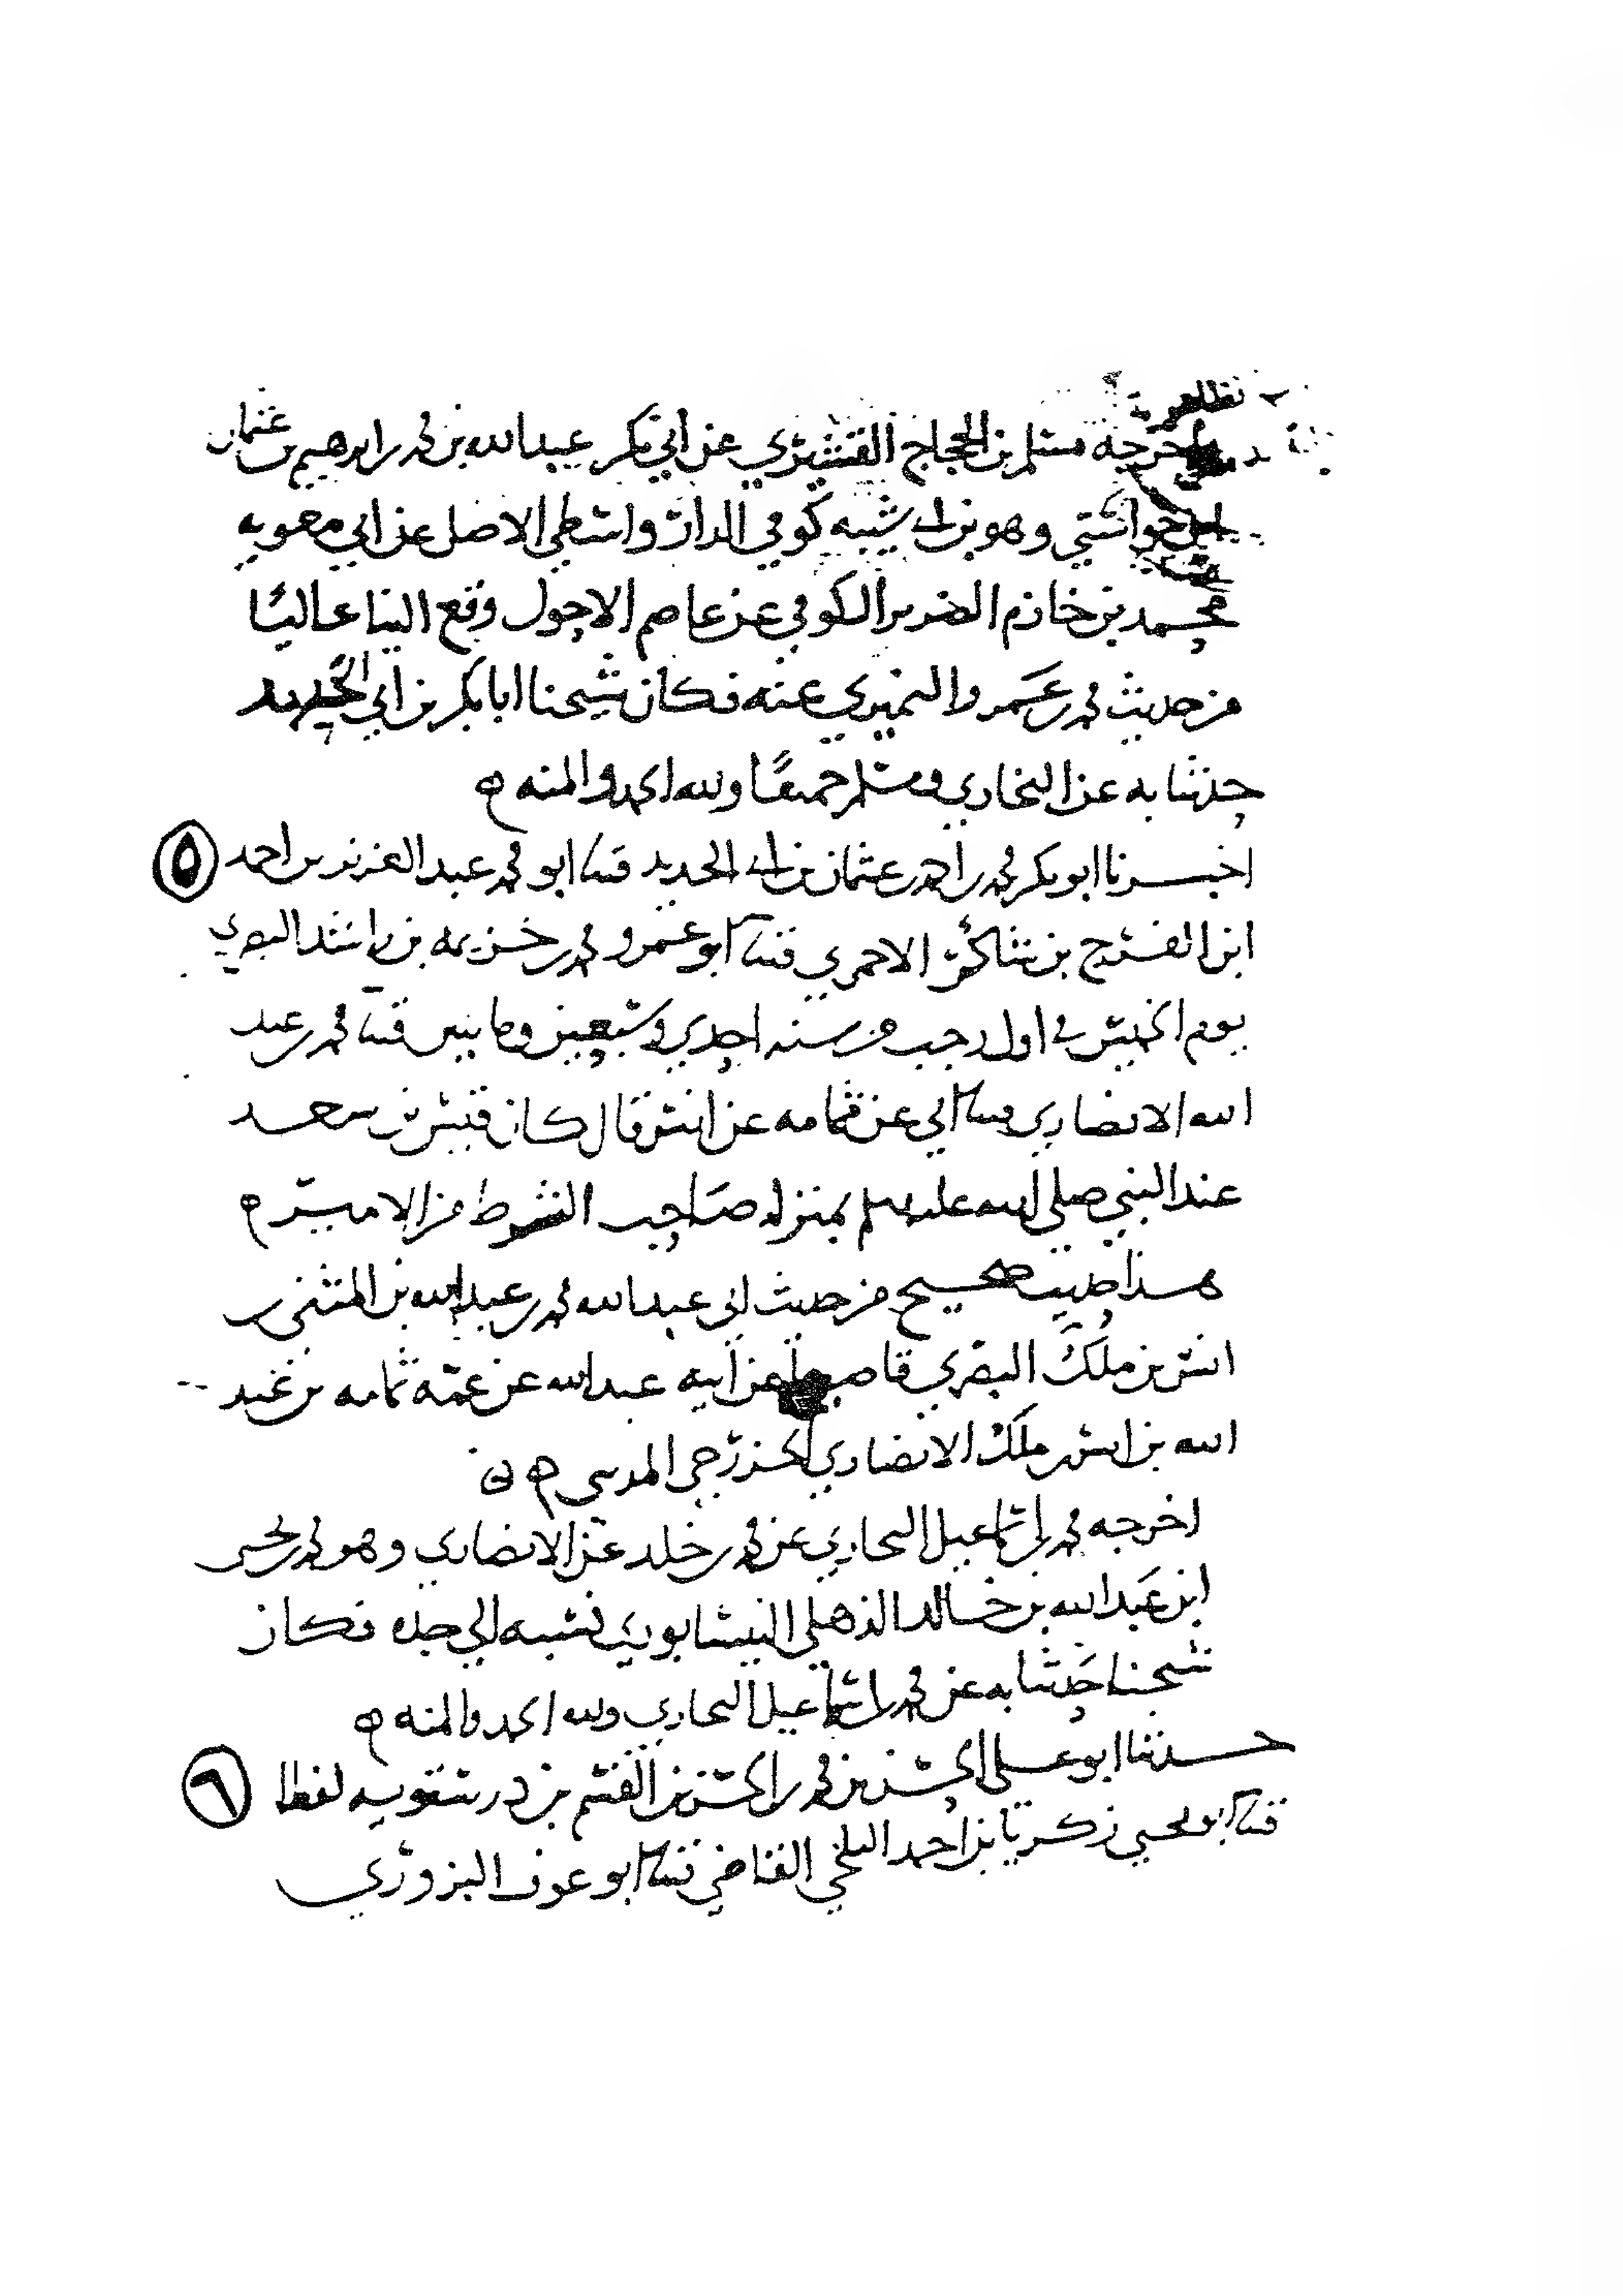 واخرجه مسلم بن الحجاج القشيري عن ابي بكر عبد الله بن محمد بن ابرهيم بن عثمان
ابن خواستي وهو بن ابي شيبه كوفي الدار واسطي الاصل عن ابي معويه
محمد بن خازم الضرير الكوفي عن عاصم الاحول وقع الينا عاليًا
من حديث محمد بن عمرو النميري عنه فكان شيخنا ابا بكر بن ابي الحديد
حدثنا به عن البخاري ومسلم جميعًا ولله الحمد والمنه ه
اخبرنا ابو بكر محمد بن احمد بن عثمان بن ابي الحديد قثنا ابو محمد عبد العزيز بن احمد ٥
ابن الفرج بن شاكر الاحمري قثنا ابو عمرو محمد بن خزيمه بن راشد البصري
يوم الخميس في اول رجب من سنه احدي وسبعين ومايتين قثنا محمد بن عبد
الله الانصاري قثنا ابي عن ثمامه عن انس قال كان قيس بن سعد
عند النبي صلى الله عليه وسلم بمنزله صاحب الشرط من الامير ه
هذا حديث صحيح من حديث ابي عبد الله محمد بن عبد الله بن المثنى بن
انس بن ملك البصري قاضيها عن ابيه عبد الله عن عمه ثمامه بن عبد
الله بن انس بن ملك الانصاري الخزرجي المدني ه
اخرجه محمد بن اسماعيل البخاري عن محمد بن خلد عن الانصاري وهو محمد بن يحيى
ابن عبد الله بن خالد الذهلي النيسابوري نسبه الي جده فكان
شيخنا حدثنا به عن محمد بن اسماعيل البخاري ولله الحمد والمنه ه
حدثنا ابو علي الحسن بن محمد بن الحسن بن القسم بن درستويه لفظا ٦
قثنا ابو يحيى زكريا بن احمد البلخي القاضي قثنا ابو عوف البزوري